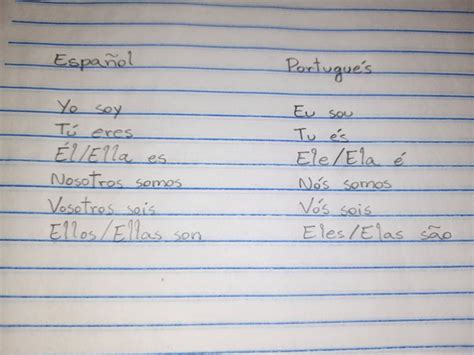 Español Portugués
Yo soy Eu sou
Tú eres Tu és
Él/Ella es Ele/Ela é
Nosotros somos Nós somos
Vosotros sois Vós sois
Ellos/Ellas son Eles/Elas são